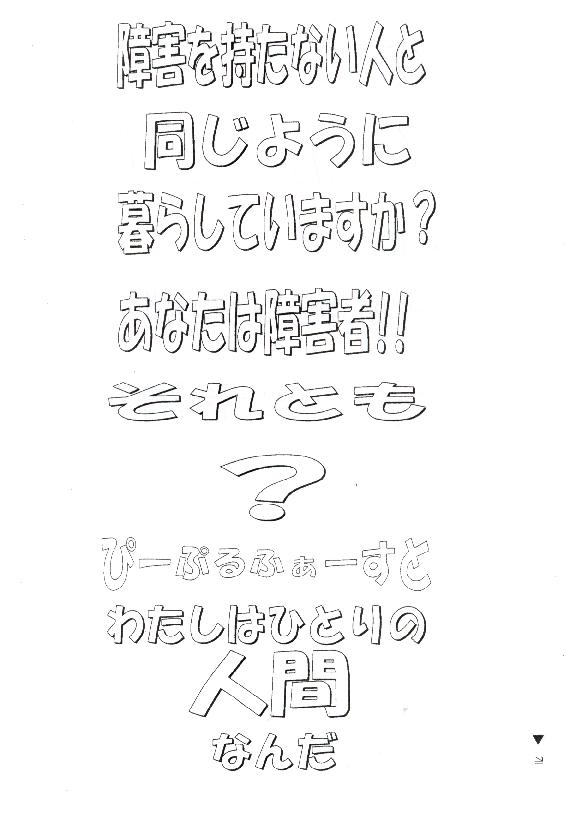 障害を持たない人と
同じように
暮らしていますか?
あなたは障害者!!
それとも
?
ぴーぷるふぁーすと
わたしはひとりの
人間
なんだ
▼